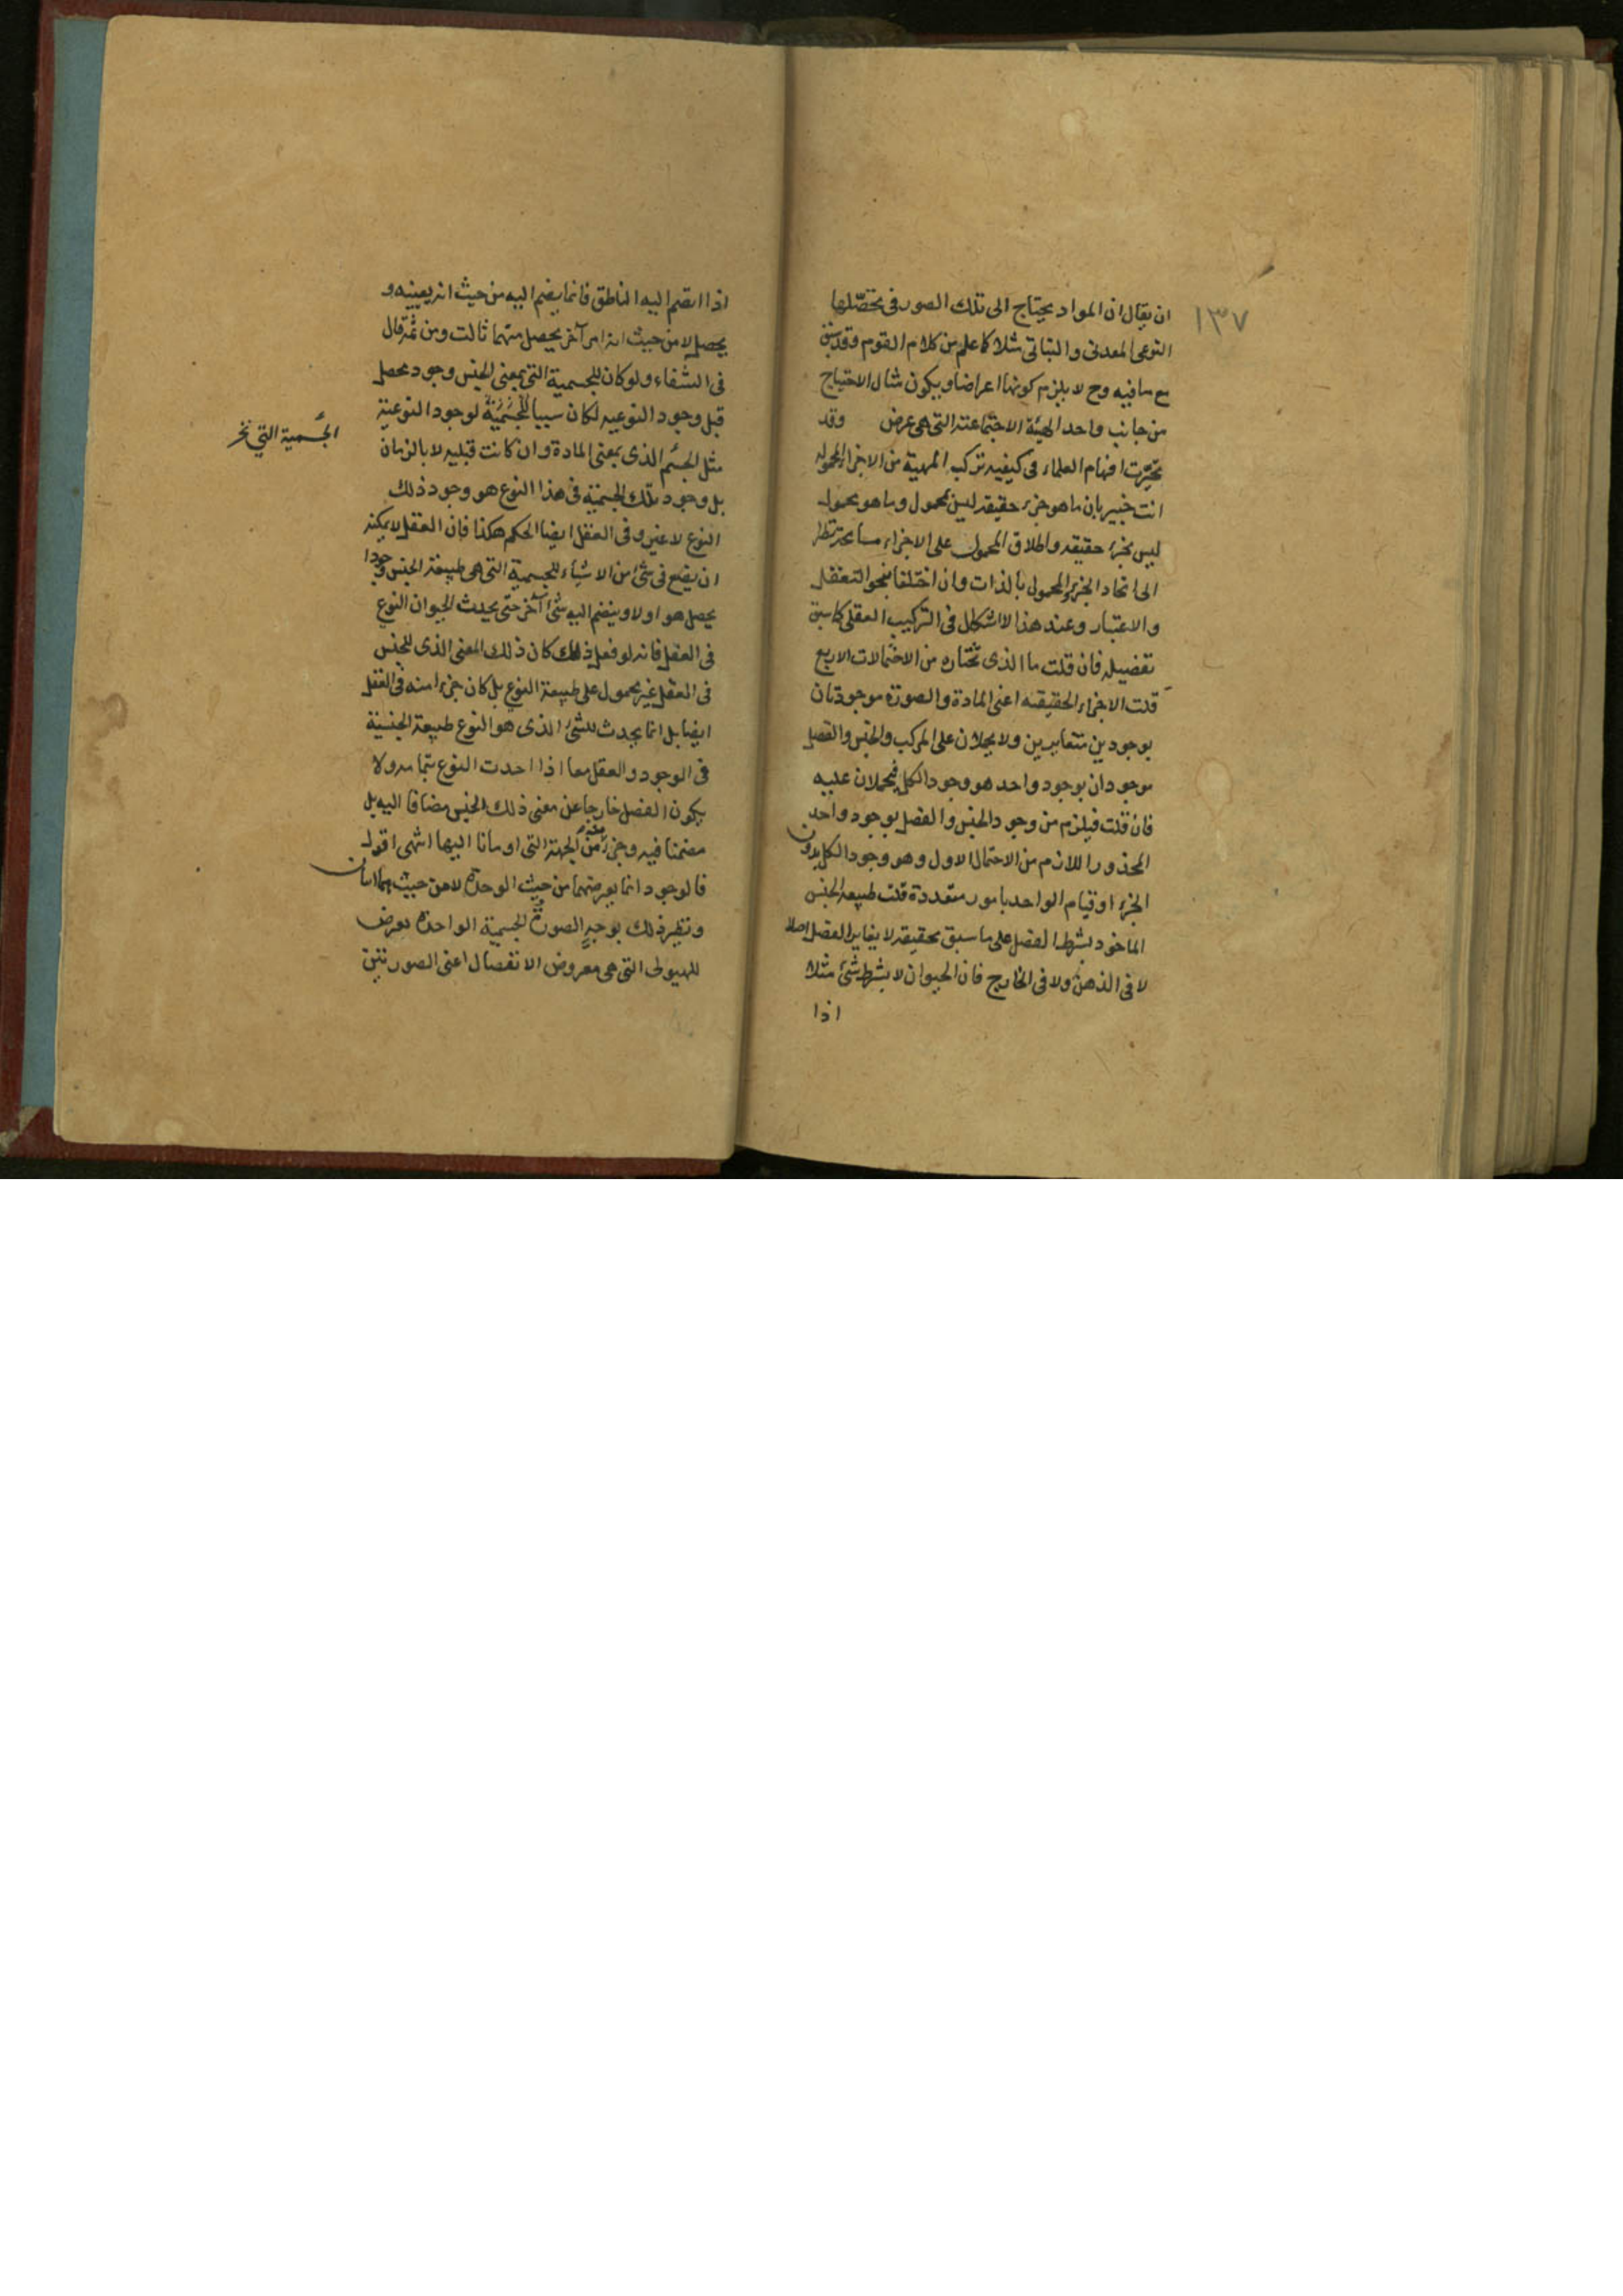 ١٣٧
ان يقال ان المواد يحتاج الى تلك الصور فى تحصّلها
النوعى المعدنى و النباتى مثلا كما علم من كلام القوم وقد سبق
مع ما فيه وح لا يلزم كونها اعراضا ويكون مثال الاحتياج
من جانب واحد الهيئة الاجتماعية التى هى عرض وقد
تحيّرت افهام العلماء فى كيفيه تركب المهية من الاجزاء المحموله
انت خبير بان ما هو جزء حقيقه ليس بمحمول وما هو محمول
ليس بجزء حقيقه واطلاق المحمول على الاجزاء مسامحة نظرا
الى اتحاد الجزء والمحمول بالذات وان اختلفا بنحو التعقل
والاعتبار وعند هذا لا اشكال فى التركيب العقلى كما سبق
تفصيله فان قلت ما الذى تختاره من الاحتمالات الاربع
قلت الاجزاء الحقيقيه اعنى المادة والصورة موجودتان
بوجودين متغايرين ولا يحملان على المركب والجنس والفصل
موجودان بوجود واحد هو وجود الكل فيحملان عليه
فان قلت فيلزم من وجود الجنس والفصل بوجود واحد
المحذور اللازم من الاحتمال الاول وهو وجود الكل بدون
الجزء او قيام الواحد بامور متعددة قلت طبيعه الجنس
الماخوذ بشرط الفصل على ما سبق تحقيقه لا يغاير الفصل اصلا
لا فى الذهن ولا فى الخارج فان الحيوان لا بشرط شئ مثلا
اذا
اذا انضم اليه الناطق فانما ينضم اليه من حيث انه يعينه و
يحصله لا من حيث انه امر آخر يحصل منهما ثالث ومن ثمة قال
فى الشفاء ولو كان للجسمية التى بمعنى الجنس وجود محصل
قبل وجود النوعيه لكان سببا للجسمية لوجود النوعية
مثل الجسم الذى بمعنى المادة وان كانت قبليه لا بالزمان
بل وجود تلك الجسمية فى هذا النوع هو وجود ذلك
النوع لا غير وفى العقل ايضا الحكم هكذا فان العقل لا يمكنه
ان يضع فى شئ من الاشياء للجسمية التى هى طبيعة الجنس وجودا
يحصل هو اولا وينضم اليه شئ آخر حتى يحدث الحيوان النوع
فى العقل فانه لو فعل ذلك كان ذلك المعنى الذى للجنس
فى العقل غير محمول على طبيعة النوع بل كان جزءا منه فى العقل
ايضا بل انما يحدث للشئ الذى هو النوع طبيعة الجنسية
فى الوجود والعقل معا اذا احدث النوع بتمامه ولا
يكون الفصل خارجا عن معنى ذلك الجنس مضافا اليه بل
مضمنا فيه وجزءا منه من الجهة التى اومانا اليها انتهى اقول
فالوجود انما يعرضهما من حيث الوحدة لا من حيث هما اثنان
ونظير ذلك بوجه الصورة الجسمية الواحدة تعرض
للهيولى التى هى معروض الانفصال اعنى الصورتين
الجسمية التى نخ